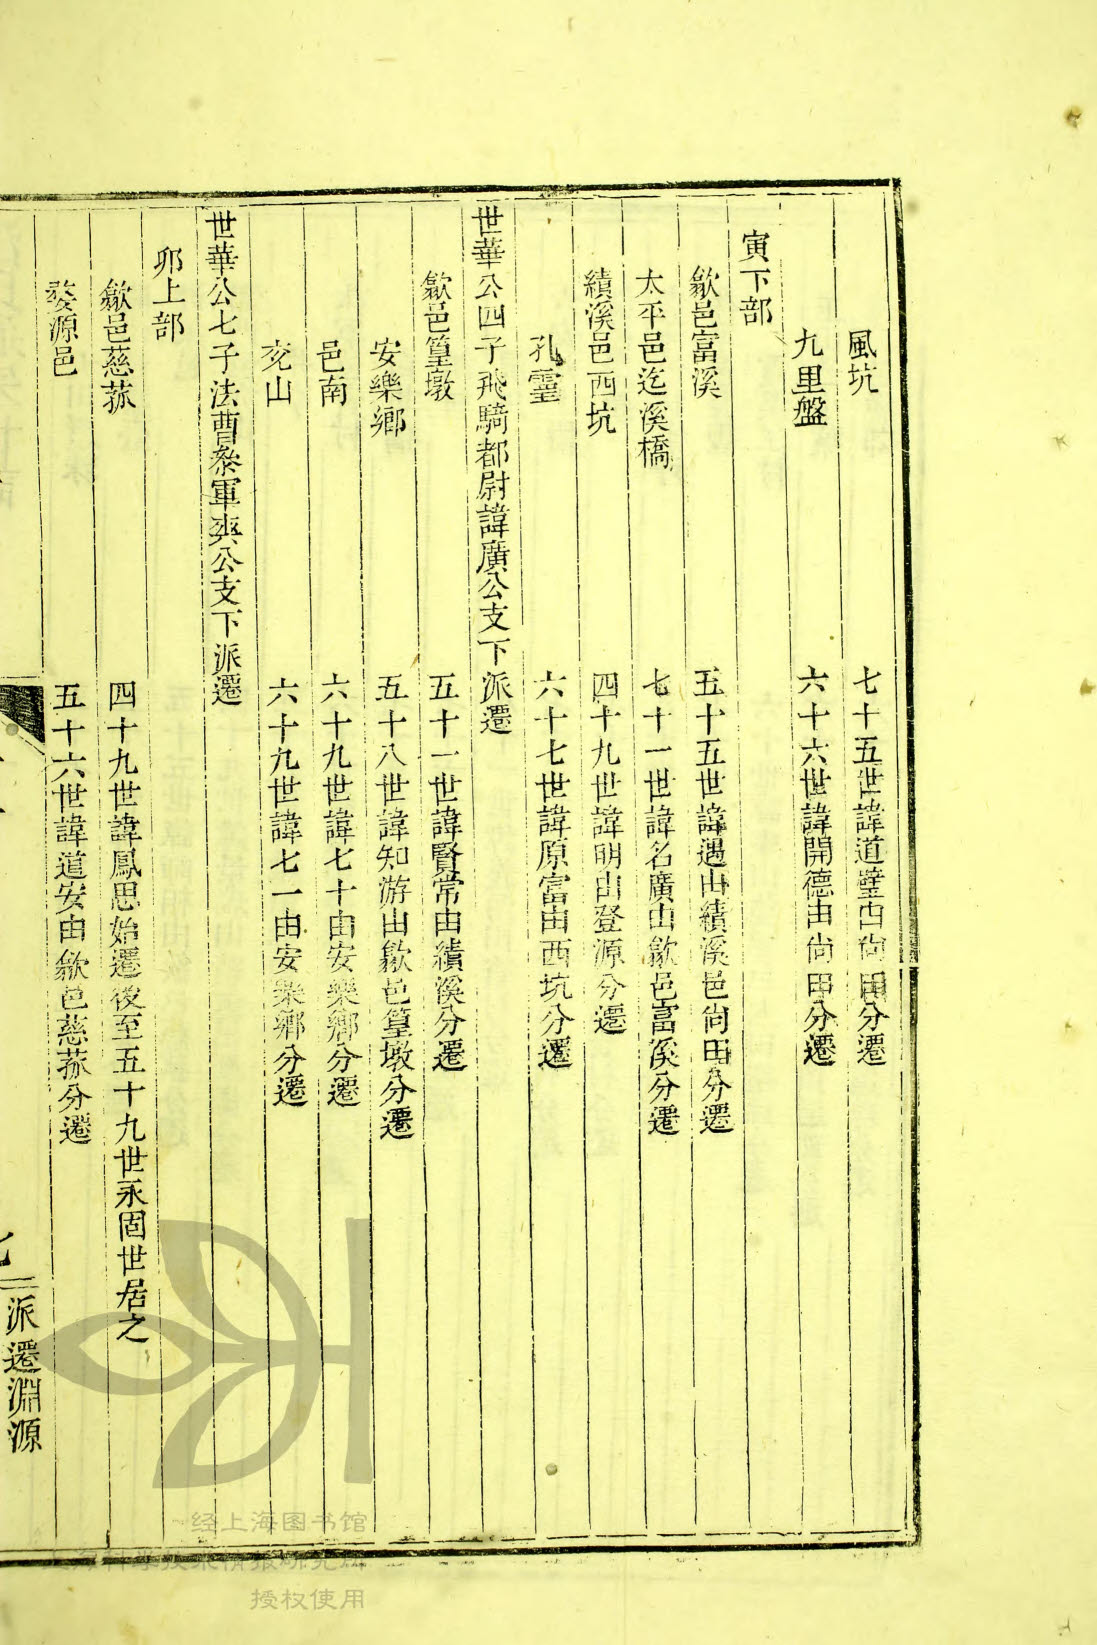 風坑　七十五世諱道璧由尙田分遷
九里盤　六十六世諱開德由尙田分遷
寅下部
歙邑富溪　五十五世諱遇由績溪邑尙田分遷
太平邑迄溪橋　七十一世諱名廣由歙邑富溪分遷
績溪邑西坑　四十九世諱明由登源分遷
孔靈　六十七世諱原富由西坑分遷
世華公四子飛騎都尉諱廣公支下派遷
歙邑篁墩　五十一世諱賢常由績溪分遷
安樂鄉　五十八世諱知游由歙邑篁墩分遷
邑南　六十九世諱七十由安樂鄉分遷
兗山　六十九世諱七一由安樂鄉分遷
世華公七子法曹叅軍爽公支下派遷
卯上部
歙邑慈菰　四十九世諱鳳思始遷後至五十九世永固世居之
婺源邑　五十六世諱道安由歙邑慈菰分遷
派遷淵源
经上海图书馆
上海科学技术情报研究所
授权使用